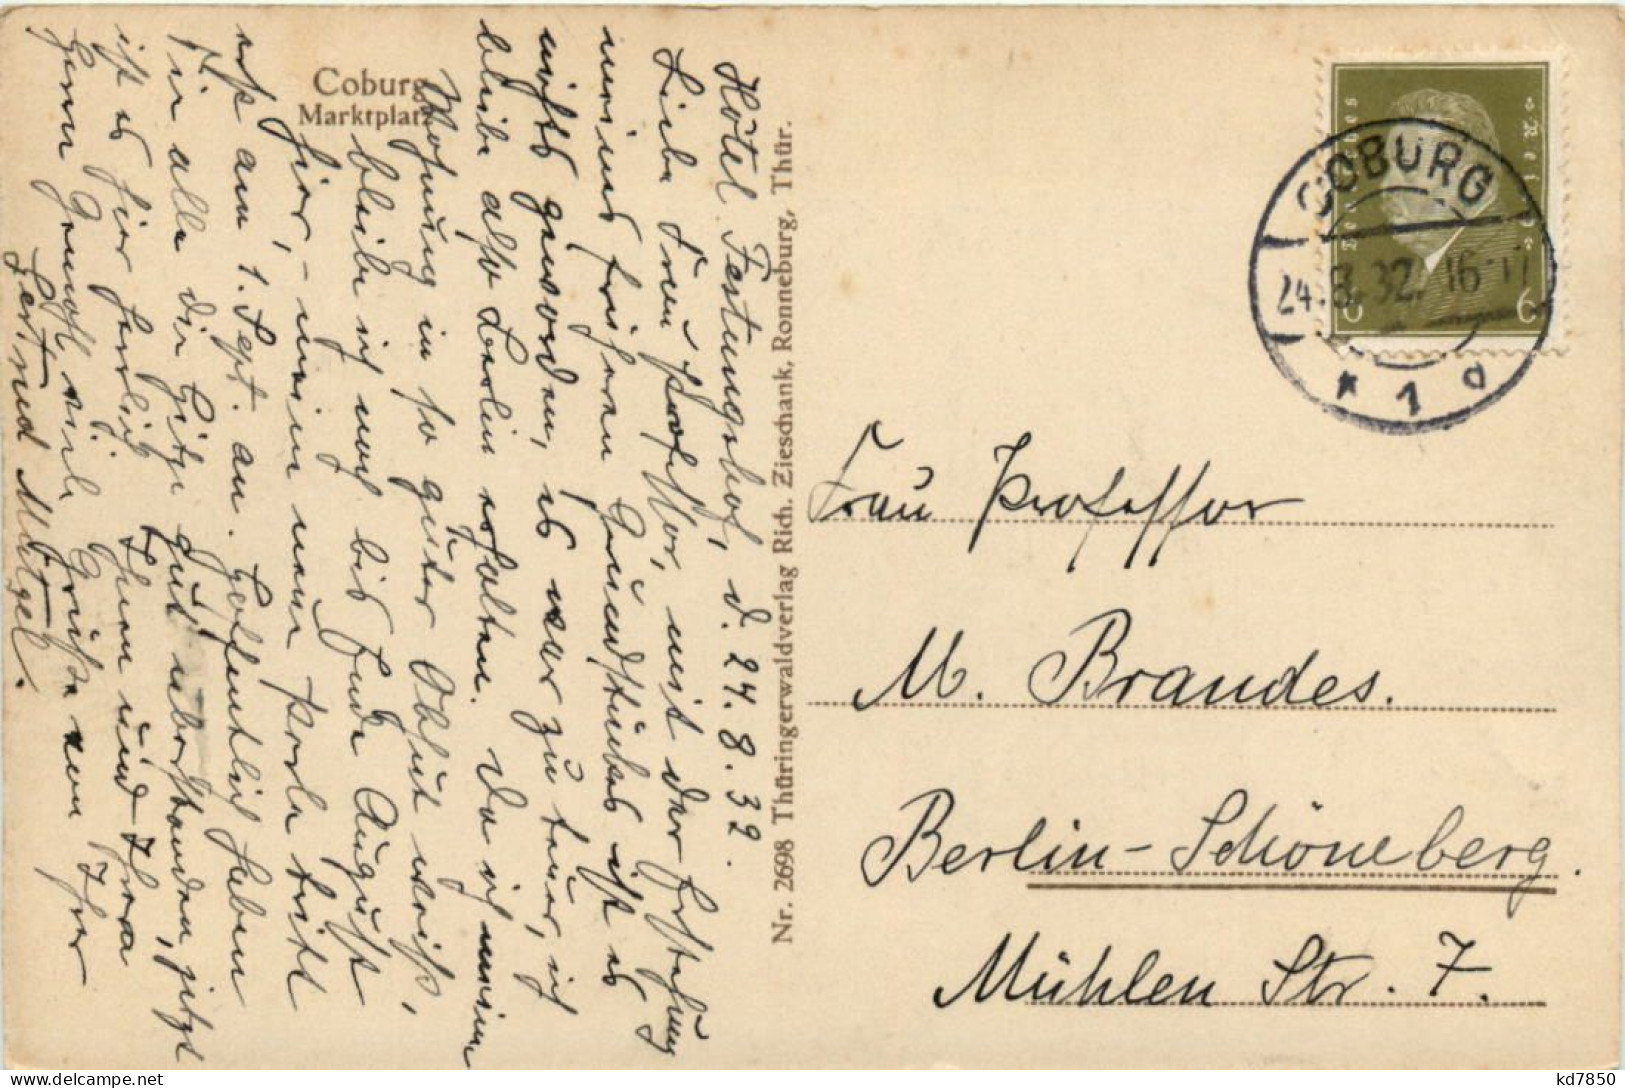 Coburg
Marktplatz
Hôtel Festungshof, d. 24.8.32.
Liebe Frau Professor, mit der Erstehung
meines früheren Grundstückes ist es
nichts geworden, es war zu teuer, ich
bleibe also Berlin erhalten. Da ich meine
Wohnung in so guter Obhut weiß,
bleibe ich noch bis Ende August
hier, – meine neue Perle tritt
erst am 1. Sept. an. Hoffentlich haben
Sie alle die Hitze gut überstanden, jetzt
ist es hier herrlich. Ihnen und Ihrem
Herrn Gemahl viele Grüße von Ihrer
Gertrud Mützel.
Nr. 2698 Thüringerwaldverlag Rich. Zieschank, Ronneburg, Thür.
COBURG
24.8.32. 16-17
* 1 d
6 6
Frau Professor
M. Brandes.
Berlin-Schöneberg.
Mühlen Str. 7.
kd7850